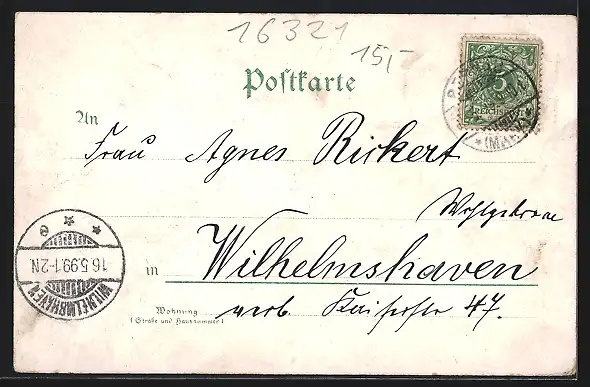 16321
15,-
Postkarte
5
REICHSPOST
An
Frau Agnes Rickert
Wohlgeboren
in Wilhelmshaven
Wohnung
(Straße und Hausnummer)
verl. Kaiserstr 47.
16.5.99.1-2N
WILHELMSHAVEN